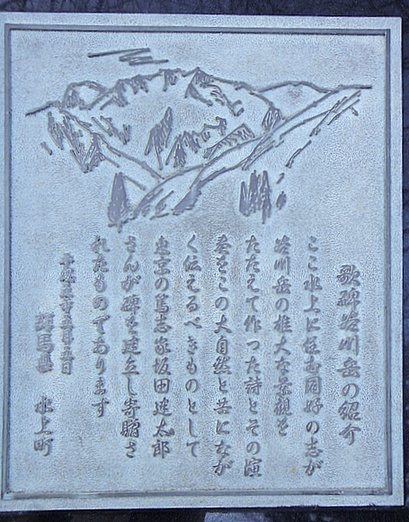 歌碑谷川岳の紹介
ここ水上に住む同好の志が
谷川岳の雄大な景観を
たたえて作った詩とその演
奏をこの大自然と共になが
く伝えるべきものとして
東京の篤志家坂田建太郎
さんが碑を建立し寄贈さ
れたものであります
平成
群馬県 水上町